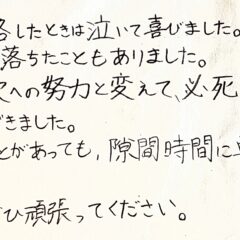 したときは泣いて喜びました。
落ちたこともありました。
への努力と変えて、必死
できました。
とがあっても、隙間時間に
ひ頑張ってください。